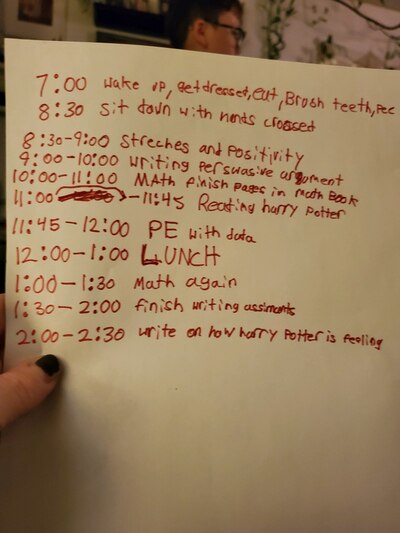 7:00 wake up, get dressed, eat, Brush teeth, pee
8:30 sit down with hands crossed
8:30-9:00 streches and positivity
9:00-10:00 writing persuasive argument
10:00-11:00 MAth finish pages in math Book
11:00 -11:45 Reading harry potter
11:45-12:00 PE with data
12:00-1:00 LUNCH
1:00-1:30 Math again
1:30-2:00 finish writing assiments
2:00-2:30 write on how harry Potter is feeling